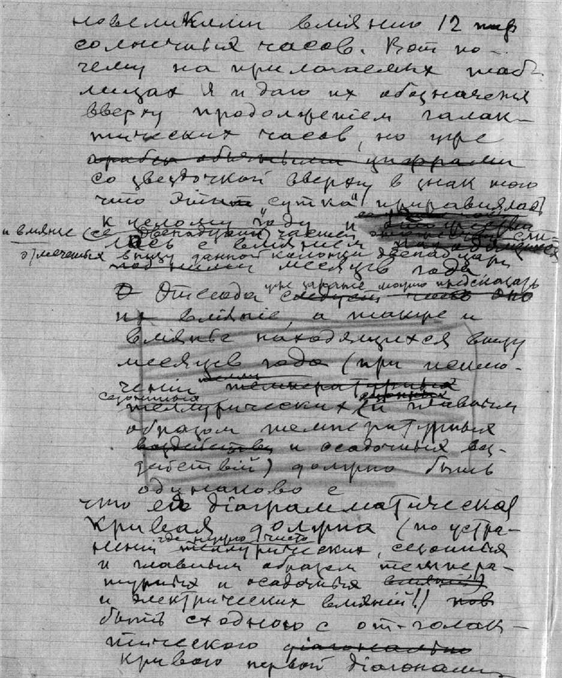 новеликими влияню 12 пар
солнечныя часов. Вот по-
чему на прилагаемых таб-
лицах я и даю их обозначения
вверху продолжением галак-
тических часов, но уже
арабск обычными цифрами
со звездочкой вверху в знак того
что эти "сутки" приравнялись
к целому году и
и влияние (се двенадцати часов сли-
лись с влиянием
отмеченных внизу данной колонци двенадцати
под ними месяцев года
Отсюда уже заранее можно предсказать
следует что оно
их влияние, а также и
влиянье находящихся внизу
месяцев года (при исклю-
чении температурныя
сезонныя
теллурических (и главным
образом температурныя
воздействий и осадочныя воз-
действий) должно быть
одинаково с
что его діаграмматическая
кривая должна (по устра-
нении где нужно чисто
теллурических, сезонныя
и главным образом темпера-
турныя и осадочныя влияній)
и электрических влияній)
быть сходною с от-галак-
тического діагонально
кривою первой діагонали